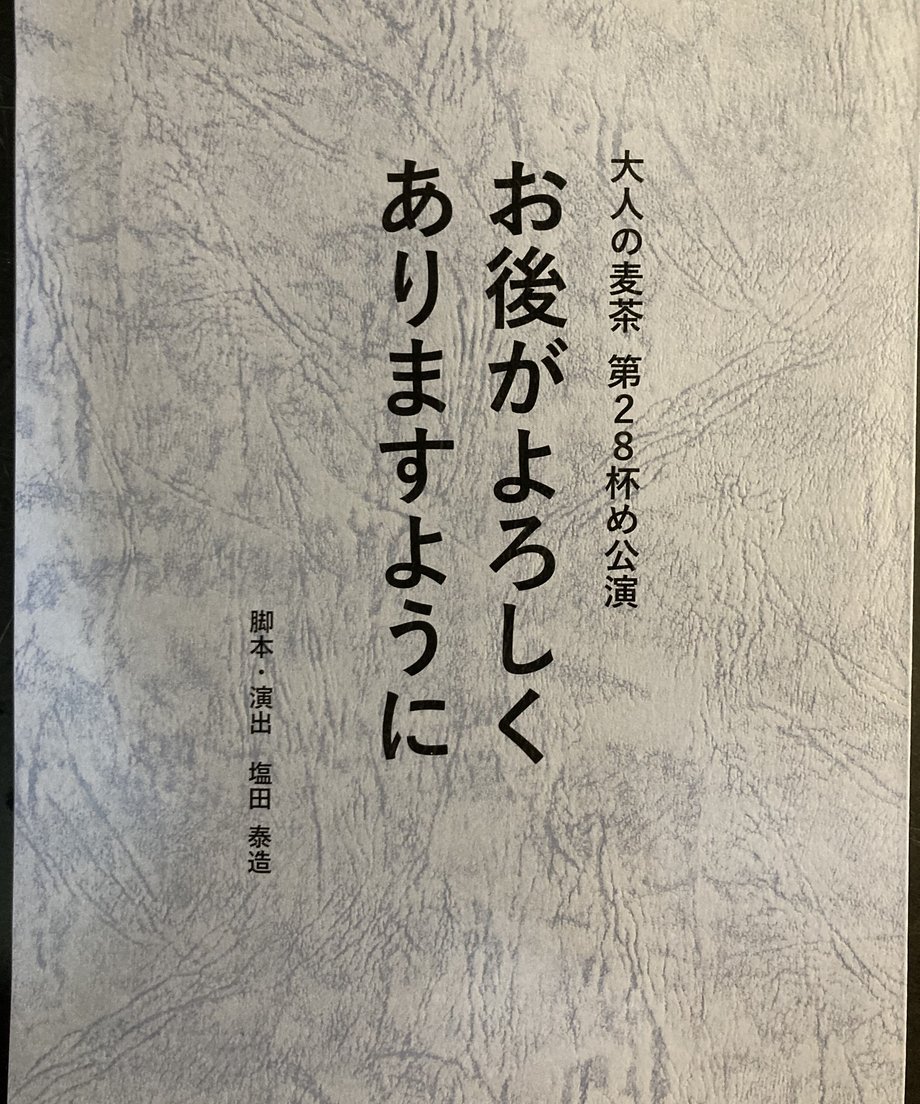 大人の麦茶 第28杯め公演
お後がよろしく
ありますように
脚本・演出 塩田 泰造